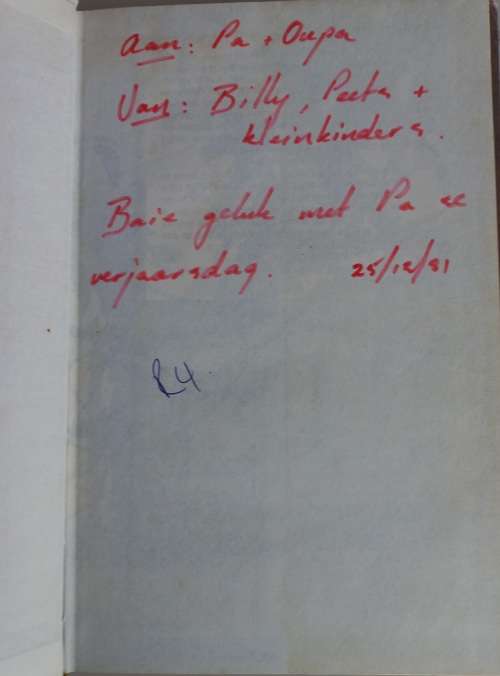 Aan: Pa + Oupa
Van: Billy, Peets +
kleinkinders.
Baie geluk met Pa se
verjaarsdag. 25/12/81
R4